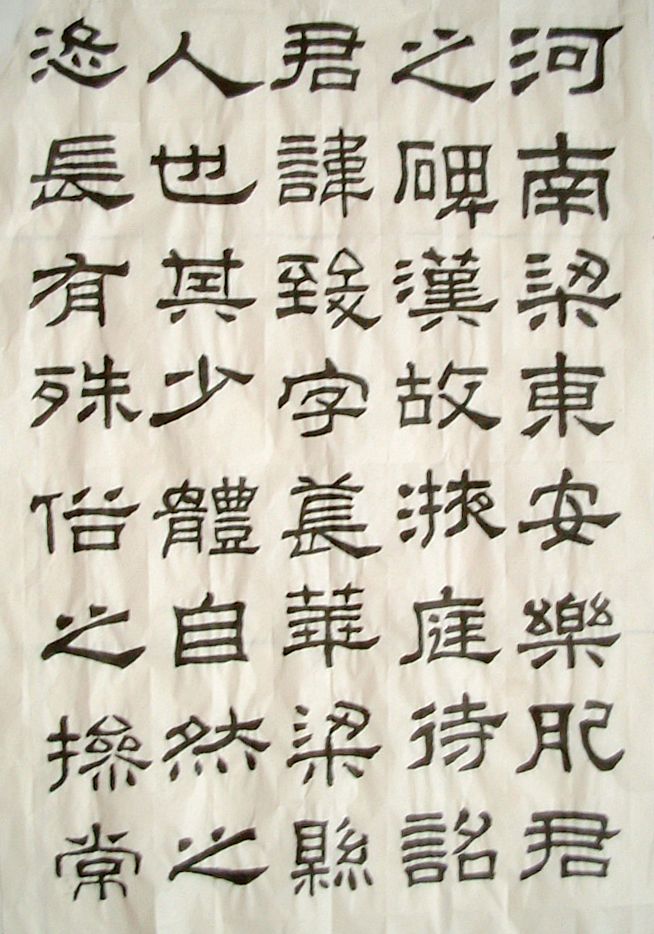 河南梁東安樂肥君
之碑漢故掖庭待詔
君諱致字萇華梁縣
人也其少體自然之
恣長有殊俗之操常